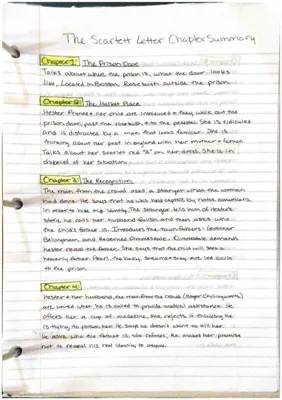 The Scarlett Letter Chapter Summary
Chapter 1: The Prison Door
Talks about where the prison is, what the door looks
like, Located in Boston. Rosebush outside the prison.
Chapter 2: The Market Place
Hester Prynne & her child are introduced & they walk out the
prison door, past the rosebush, & to the pedestal. She is ridiculed
and is distracted by a man that looks familiar. She is
thinking about her past in england with her mother & father
Talks about her scarlet red "A" on her dress. She is in
disbelief of her situation.
Chapter 3: The Recognition
The man from the crowd asks a stranger what the woman
had done. He says that he was held captive by native americans
in order to hide his identity. The stranger tells him of Hester's
story, he calls her husband foolish, and then asks who
the child's father is. Introduces the town fathers - Governor
Bellingham, and Reverend Dimmesdale. Dimmesdale demands
Hester reveal the father. She says that the child will seek a
heavenly father. Pearl, the baby, screams & they are led back
to the prison
Chapter 4:
Hester & her husband, the man from the crowd (Roger Chillingworth)
are united when he is called to provide medical assistance. He
offers her a cup of medicine, she rejects it thinking he
is trying to poison her. He says he doesn't want to kill her.
He asks who the father is, she refuses, he makes her promise
not to reveal his real identity to anyone.